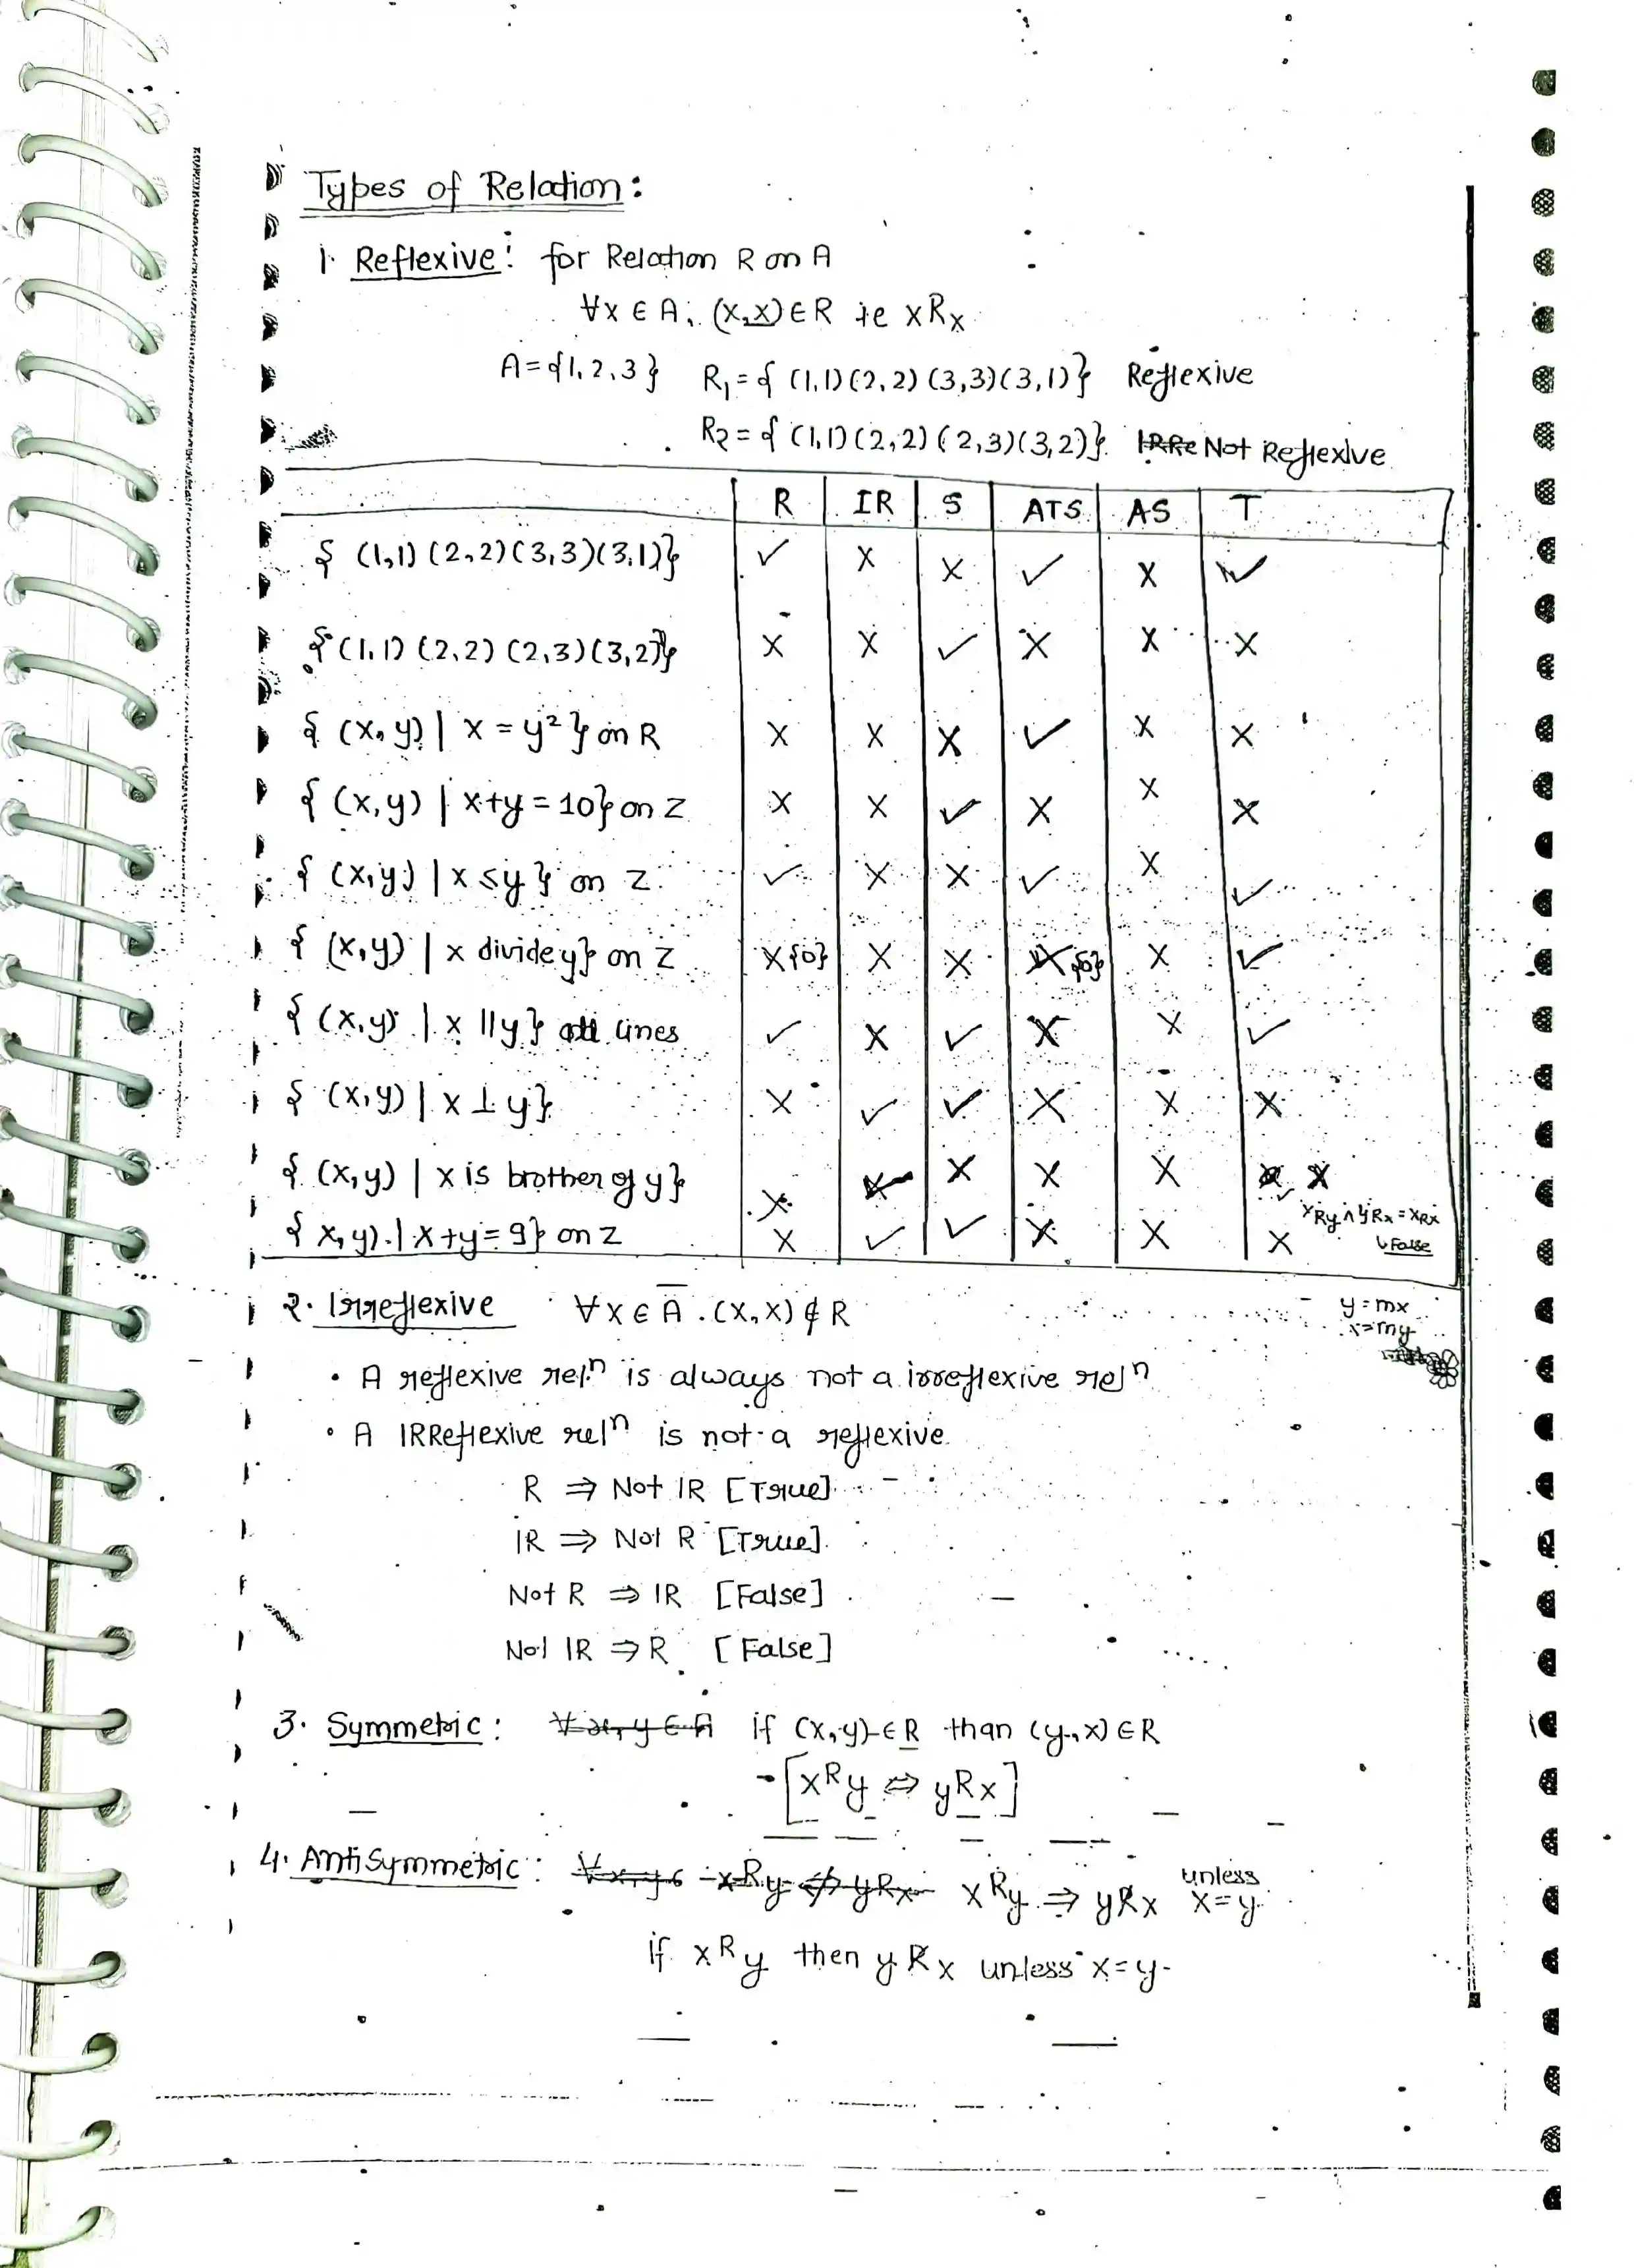 Types of Relation:
1. Reflexive: for Relation R on A
∀x ∈ A, (x,x) ∈ R ie xRx
A = {1,2,3} R₁ = { (1,1) (2,2) (3,3) (3,1)} Reflexive
R₂ = { (1,1) (2,2) (2,3) (3,2)}. IRRe Not Reflexive
R IR S ATS AS T
{ (1,1) (2,2) (3,3) (3,1)} ✓ X X ✓ X ✓
{ (1,1) (2,2) (2,3) (3,2)} X X ✓ X X X
{ (x,y) | x = y² } on R X X X ✓ X X
{ (x,y) | x+y = 10} on Z X X ✓ X X X
{ (x,y) | x ≤ y } on Z ✓ X X ✓ X ✓
{ (x,y) | x divide y} on Z X{0} X X X{0} X ✓
{ (x,y) | x || y} all lines ✓ X ✓ X X ✓
{ (x,y) | x ⊥ y} X ✓ ✓ X X X
{ (x,y) | x is brother of y} X ✓ X X X X
xRy ∧ yRx = xRx
↳ False
{ x,y) | x+y = 9} on Z X ✓ ✓ X X X
2. Irreflexive ∀x ∈ A . (x,x) ∉ R
y = mx
x = my
• A reflexive relⁿ is always not a irreflexive relⁿ
• A IRReflexive relⁿ is not a reflexive
R ⇒ Not IR [True]
IR ⇒ Not R [True].
Not R ⇒ IR [False]
Not IR ⇒ R [False]
3. Symmetric: ∀ x, y ∈ A if (x,y) ∈ R than (y,x) ∈ R
[xRy ⇔ yRx]
4. AntiSymmetric: ∀x,y ∈ xRy ⇎ yRx xRy ⇒ yR̸x unless x=y
if xRy then yR̸x unless x=y